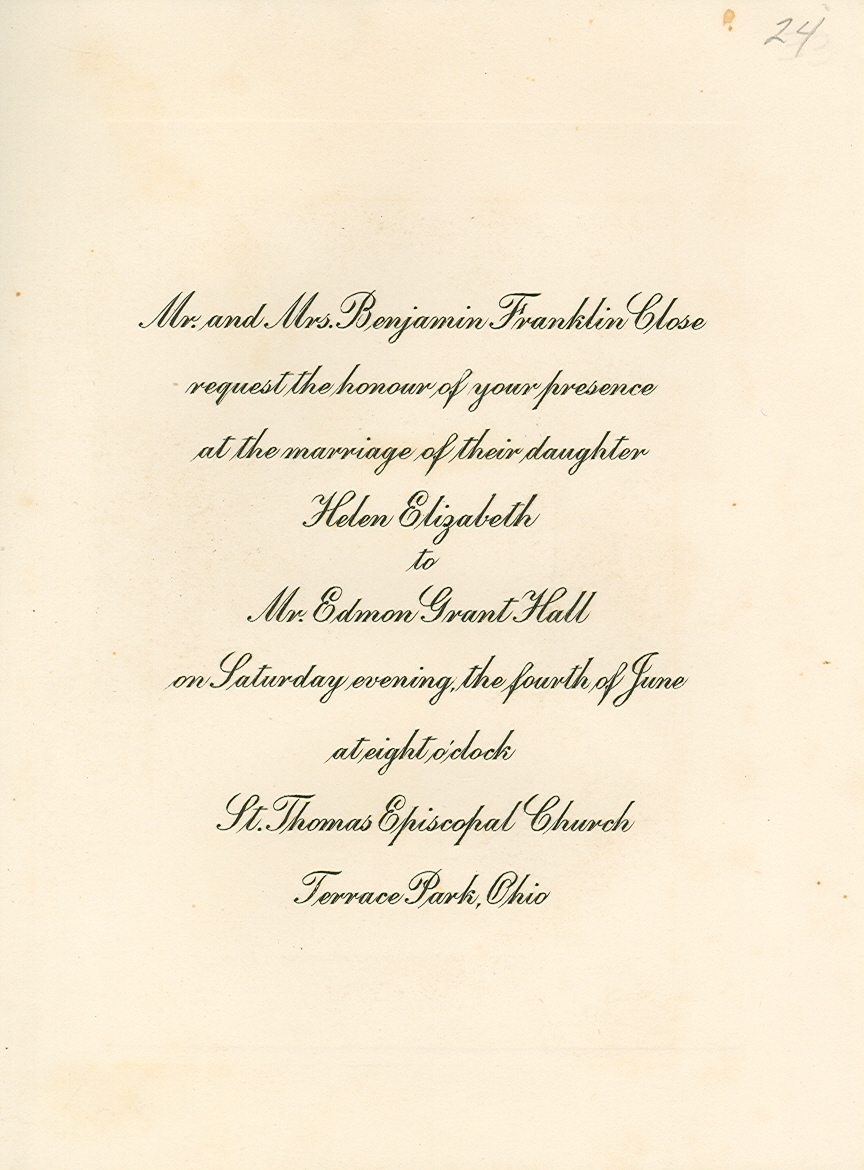 24
Mr. and Mrs. Benjamin Franklin Close
request the honour of your presence
at the marriage of their daughter
Helen Elizabeth
to
Mr. Edmon Grant Hall
on Saturday evening, the fourth of June
at eight o'clock
St. Thomas Episcopal Church
Terrace Park, Ohio